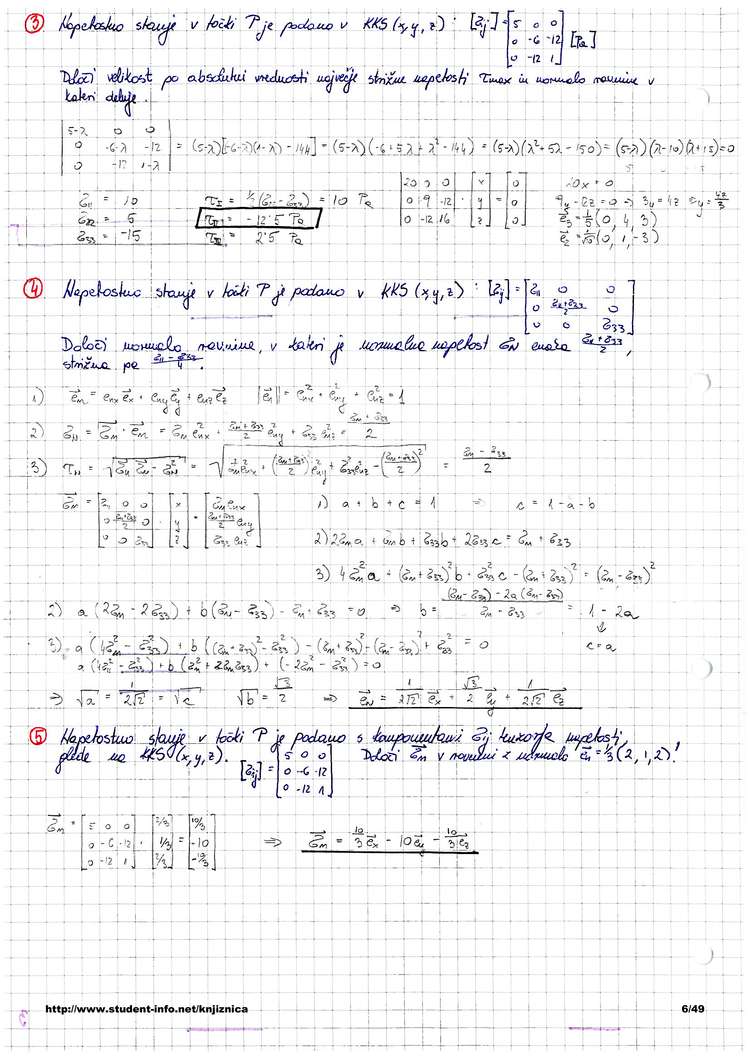 ③ Napetostno stanje v točki P je podano v KKS (x,y,z) : [σij] = [5 0 0; 0 -6 -12; 0 -12 1] [Pa]
Določi velikost po absolutni vrednosti največje strižne napetosti τmax in normalo ravnine v
kateri deluje.
|5-λ 0 0; 0 -6-λ -12; 0 -12 1-λ| = (5-λ)[(-6-λ)(1-λ) - 144] = (5-λ)(-6+5λ+λ²-144) = (5-λ)(λ²+5λ-150) = (5-λ)(λ-10)(λ+15) = 0
σ11 = 10
σ22 = 5
σ33 = -15
τI = ½(σ11 - σ33) = 10 Pa
τII = -12.5 Pa
τIII = 2.5 Pa
[20 0 0; 0 9 -12; 0 -12 16] · [x; y; z] = [0; 0; 0]
20x = 0
⇒ 3y = 4z y = 4z/3
e3 = 1/5 (0, 4, 3)
(0, 1, -3)
④ Napetostno stanje v točki P je podano v KKS (x,y,z) : [σij] = [σ11 0 0; 0 (σ11+σ33)/2 0; 0 0 σ33]
Določi normalo ravnine, v kateri je normalna napetost σN enaka (σ11+σ33)/2 ,
strižna pa (σ11-σ33)/4 .
1) en = enx ex + eny ey + enz ez |en| = enx² + eny² + enz² = 1
2) σN = σn · en = σ11 enx² + (σ11+σ33)/2 eny² + σ33 enz² = (σ11+σ33)/2
3) τN = √(σn σn - σN²) = √(σ11² enx² + ((σ11+σ33)/2)² eny² + σ33² enz² - ((σ11+σ33)/2)²) = (σ11-σ33)/2
σn = [σ11 0 0; 0 (σ11+σ33)/2 0; 0 0 σ33] · [x; y; z] = [σ11 enx; (σ11+σ33)/2 eny; σ33 enz]
1) a + b + c = 1 ⇒ c = 1-a-b
2) 2σ11 a + σ11 b + σ33 b + 2σ33 c = σ11 + σ33
3) 4σ11² a + (σ11+σ33)² b + σ33² c - (σ11+σ33)² = (σ11-σ33)²
2) a (2σ11 - 2σ33) + b (σ11 - σ33) - σ11 + σ33 = 0 ⇒ b = ((σ11-σ33) - 2a(σ11-σ33))/(σ11-σ33) = 1-2a
↓
c = a
3) a (4σ11² - σ33²) + b ((σ11+σ33)² - σ33²) - (σ11+σ33)² - (σ11-σ33)² + σ33² = 0
a (4σ11² - σ33²) + b (σ11² + 2σ11σ33) + (-2σ11² - σ33²) = 0
⇒ √a = 1/(2√2) = √c √b = √3/2 ⇒ eN = 1/(2√2) ex + √3/2 ey + 1/(2√2) ez
⑤ Napetostno stanje v točki P je podano s komponentami σij tenzorja napetosti,
glede na KKS (x,y,z). [σij] = [5 0 0; 0 -6 -12; 0 -12 1] Določi σn v ravnini z normalo en = 1/3 (2, 1, 2)!
σn = [5 0 0; 0 -6 -12; 0 -12 1] · [2/3; 1/3; 2/3] = [10/3; -10; -10/3] ⇒ σn = 10/3 ex - 10 ey - 10/3 ez
http://www.student-info.net/knjiznica 6/49